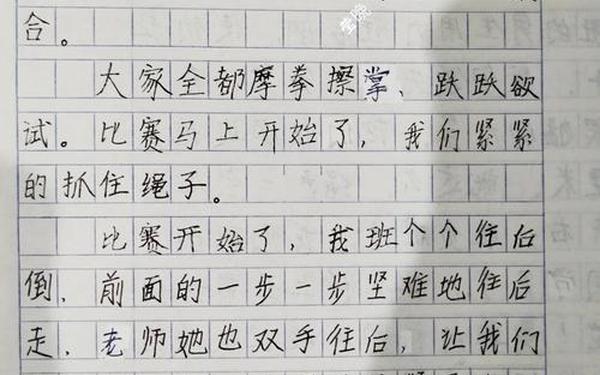 合。
大家全都摩拳擦掌、跃跃欲
试。比赛马上开始了，我们紧紧
的抓住绳子。
比赛开始了，我班个个往后
倒，前面的一步一步坚难地往后
走，老师她也双手往后，让我们